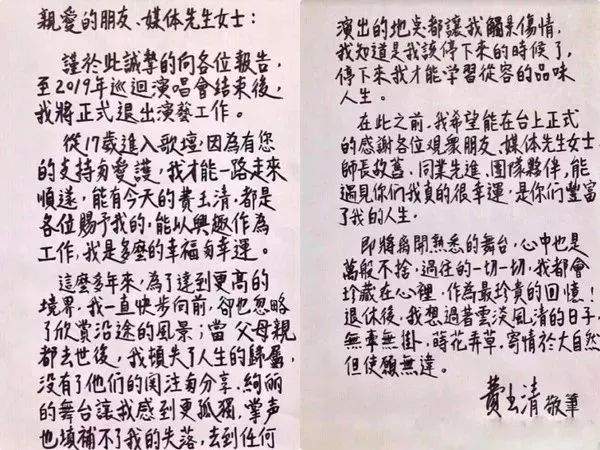 親愛的朋友、媒体先生女士：
謹於此誠摯的向各位報告，
至2019年巡迴演唱會結束後，
我將正式退出演藝工作。
從17歲進入歌壇，因為有您
的支持与愛護，我才能一路走來
順遂，能有今天的費玉清，都是
各位賜予我的，能以興趣作為
工作，我是多麼的幸福与幸運。
這麼多年來，為了達到更高的
境界，我一直快步向前，卻也忽略
了欣賞沿途的風景；當父母親
都去世後，我頓失了人生的歸屬，
沒有了他們的関注与分享，絢丽
的舞台讓我感到更孤獨，掌声
也填補不了我的失落，去到任何
演出的地点都讓我觸景傷情，
我知道是我該停下來的時候了，
停下來我才能学習從容的品味
人生。
在此之前，我希望能在台上正式
的感谢各位观衆朋友、媒体先生女士、
師長故舊、同業先進、团隊夥伴，能
遇見你們我真的很幸運，是你們豐富
了我的人生。
即將离開熟悉的舞台，心中也是
萬般不捨，過往的一切一切，我都會
珍藏在心裡，作為最珍貴的回憶！
退休後，我想過著雲淡風清的日子，
無牽無掛，蒔花弄草，寄情於大自然
但使願無違。
費玉清 敬筆